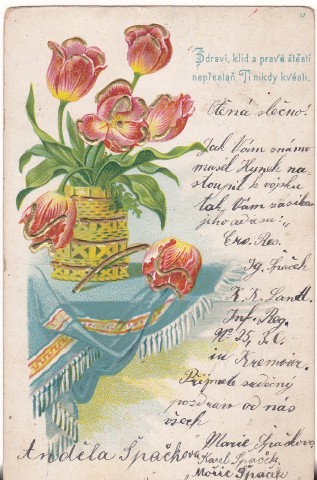 Zdraví, klid a pravé štěstí
nepřestaň Ti nikdy kvésti.
Ctěná slečno!
Jak Vám známo
musel Hynek na-
stoupit k vojsku
tak Vám zasílám
jeho adresu:
Ig. Špaček
K. K. Landw.
Inf. Reg.
Nº 25,
in Kremsier.
Přijmete srdečný
pozdrav od nás
všech
Marie Špačkova
Karel Špaček
Mořic Špaček
Anděla Špačkova